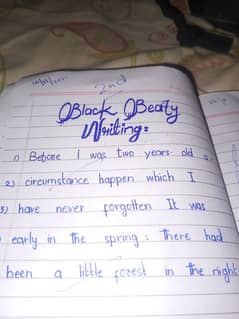 2nd
Black Beaty
Writing:
1) Before I was two years old a
2) circumstance happen which I
3) have never forgotten It was
early in the spring: there had
been a little forest in the night